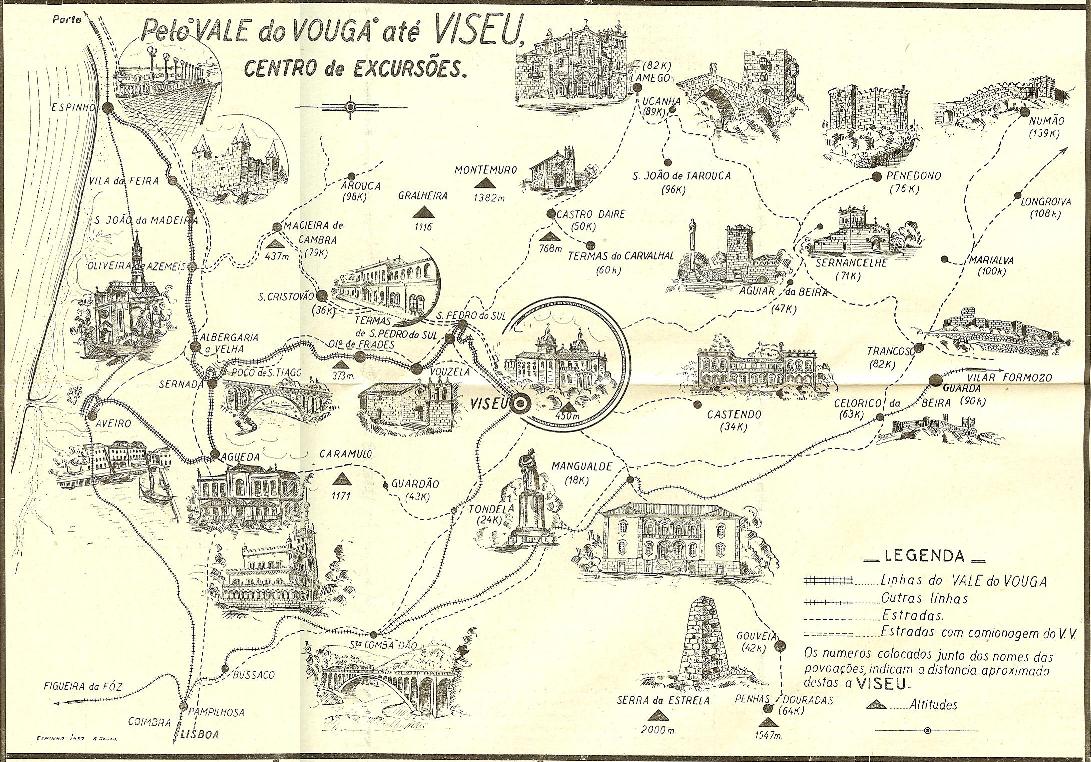 Porto
Pelo VALE do VOUGA até VISEU,
CENTRO de EXCURSÕES.
ESPINHO
(82K)
LAMEGO
UCANHA
(89K)
NUMÃO
(139K)
VILA da FEIRA
AROUCA
(96K)
MONTEMURO
1382m
S. JOÃO de TAROUCA
(96K)
PENEDONO
(76K)
LONGROIVA
(108K)
S. JOÃO da MADEIRA
GRALHEIRA
1116
CASTRO DAIRE
(50K)
768m
MACIEIRA de
CAMBRA
(79K)
437m
TERMAS do CARVALHAL
(60K)
SERNANCELHE
(71K)
MARIALVA
(100K)
OLIVEIRA de AZEMEIS
S. CRISTOVÃO
(36K)
AGUIAR da BEIRA
(47K)
TERMAS
de S. PEDRO do SUL
S. PEDRO do SUL
ALBERGARIA
a VELHA
OLª de FRADES
373m
VOUZELA
TRANCOSO
(82K)
POÇO de S. TIAGO
SERNADA
VISEU
450m
VILAR FORMOZO
GUARDA
(90K)
CELORICO da BEIRA
(63K)
CASTENDO
(34K)
AVEIRO
AGUEDA
CARAMULO
1171
GUARDÃO
(43K)
MANGUALDE
(18K)
TONDELA
(24K)
LEGENDA
Linhas do VALE do VOUGA
Outras linhas
Estradas.
Estradas com camionagem do V.V.
Os numeros colocados junto dos nomes das
povoações, indicam a distancia aproximada
destas a VISEU.
Altitudes
Stª COMBA DÃO
GOUVEIA
(42K)
BUSSACO
FIGUEIRA da FÓZ
SERRA da ESTRELA
2000m
PENHAS DOURADAS
(64K)
1547m
PAMPILHOSA
COIMBRA
LISBOA
ESPINHO